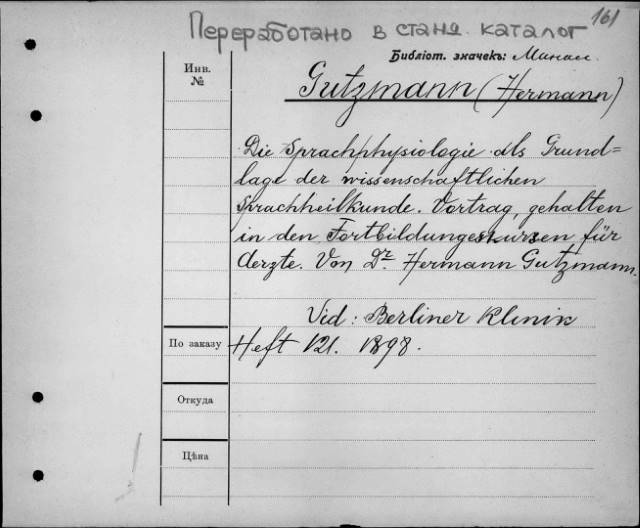 161
Переработано в станд. каталог
Библіот. значекъ:
Инв.
№
Gutzmann (Hermann)
Die Sprachphysiologie als Grund=
lage der wissenschaftlichen
Sprachheilkunde. Vortrag, gehalten
in den Fortbildungskursen für
Aerzte. Von Dr. Hermann Gutzmann.
Vid: Berliner Klinik
По заказу
Heft 121. 1898.
Откуда
Цѣна